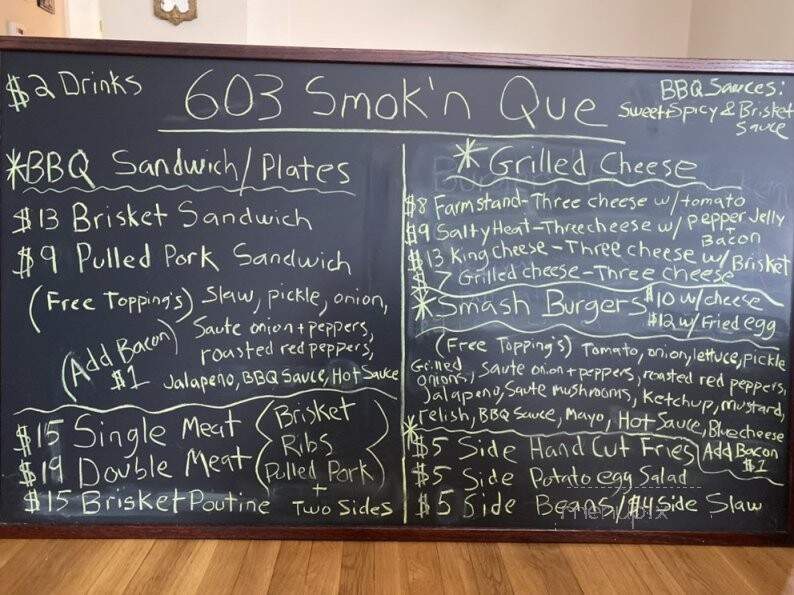 $2 Drinks
603 Smok'n Que
BBQ Sauces:
Sweet, Spicy & Brisket
Sauce
*BBQ Sandwich/Plates
$13 Brisket Sandwich
$9 Pulled Pork Sandwich
(Free Topping's) Slaw, pickle, onion,
Saute onion + peppers,
roasted red peppers,
(Add Bacon) $1
Jalapeno, BBQ Sauce, Hot Sauce
$15 Single Meat
$19 Double Meat
(Brisket
Ribs
Pulled Pork)
+
Two Sides
$15 Brisket Poutine
* Grilled Cheese
$8 Farmstand - Three cheese w/ tomato
$9 Salty Heat - Three cheese w/ pepper Jelly
+
Bacon
$13 King cheese - Three cheese w/ Brisket
$7 Grilled cheese - Three cheese
*Smash Burgers $10 w/ cheese
$12 w/ Fried egg
(Free Topping's) Tomato, onion, lettuce, pickle
Grilled onions, Saute onion + peppers, roasted red peppers,
Jalapeno, Saute mushrooms, Ketchup, mustard,
relish, BBQ Sauce, Mayo, Hot Sauce, Bluecheese
Add Bacon
$1
*
$5 Side Hand Cut Fries
$5 Side Potato egg Salad
$5 Side Beans / $4 Side Slaw
menupix